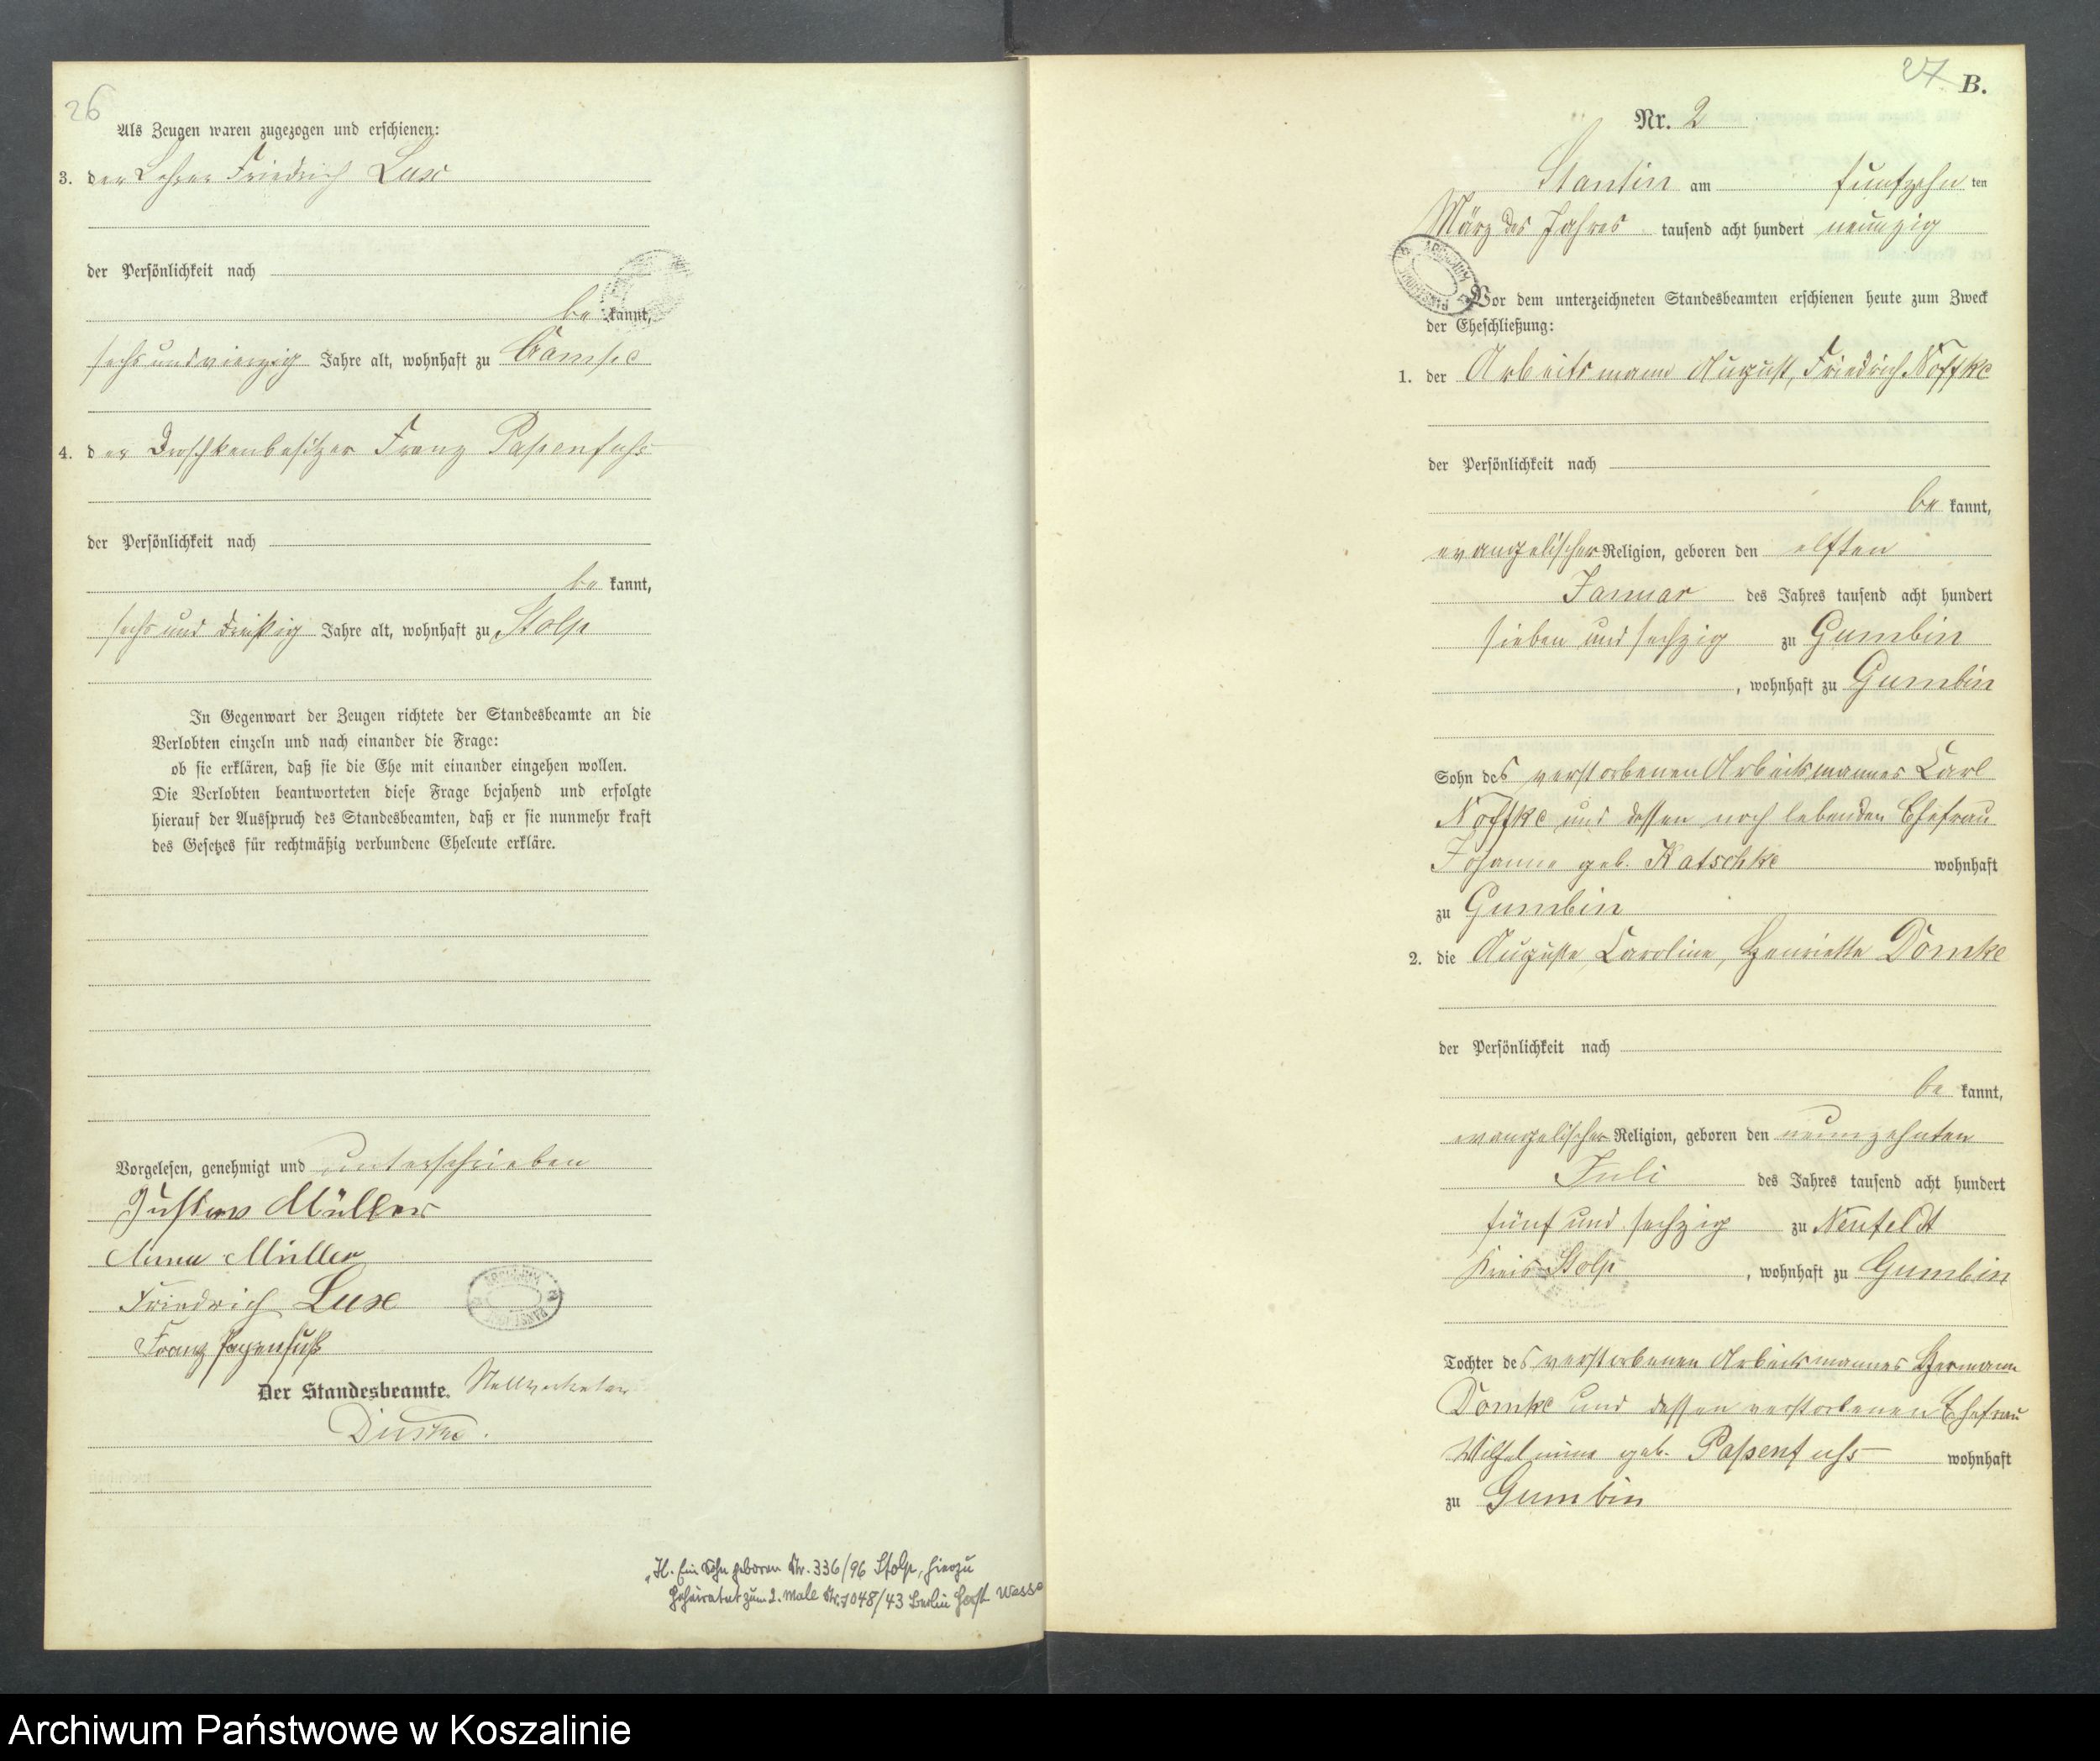 26
Als Zeugen waren zugezogen und erschienen:
3. der Lehrer Friedrich Lux
der Persönlichkeit nach
be kannt,
sechs und vierzig Jahre alt, wohnhaft zu Gambe
4. der Droschkenbesitzer Franz Papenfuhs
der Persönlichkeit nach
be kannt,
sechs und dreißig Jahre alt, wohnhaft zu Stolp
In Gegenwart der Zeugen richtete der Standesbeamte an die
Verlobten einzeln und nach einander die Frage:
ob sie erklären, daß sie die Ehe mit einander eingehen wollen.
Die Verlobten beantworteten diese Frage bejahend und erfolgte
hierauf der Ausspruch des Standesbeamten, daß er sie nunmehr kraft
des Gesetzes für rechtmäßig verbundene Eheleute erkläre.
Vorgelesen, genehmigt und unterschrieben
Gustav Müller
Anna Müller
Friedrich Lux
Franz Papenfuß
Der Standesbeamte. Stellvertreter
H. Ein Sohn geboren Nr. 336/96 Stolp, hierzu
Geheiratet zum 2. Male Nr. 1048/43 Berlin Horst Wess
27 B.
Nr. 2
Stantin am fünfzehn ten
März des Jahres tausend acht hundert neunzig
Vor dem unterzeichneten Standesbeamten erschienen heute zum Zweck
der Eheschließung:
1. der Arbeitsmann August, Friedrich Noffke
der Persönlichkeit nach
be kannt,
evangelischer Religion, geboren den elften
Januar des Jahres tausend acht hundert
sieben und sechzig zu Gumbin
, wohnhaft zu Gumbin
Sohn des verstorbenen Arbeitsmannes Carl
Noffke und dessen noch lebenden Ehefrau
Johanne geb. Katschke wohnhaft
zu Gumbin
2. die Auguste, Caroline, Henriette Domke
der Persönlichkeit nach
be kannt,
evangelischer Religion, geboren den neunzehnten
Juli des Jahres tausend acht hundert
fünf und sechzig zu Neufeldt
Kreis Stolp , wohnhaft zu Gumbin
Tochter des verstorbenen Arbeitsmannes Hermann
Domke und dessen verstorbenen Ehefrau
Wilhelmine geb. Papenfuhs wohnhaft
zu Gumbin
Archiwum Państwowe w Koszalinie